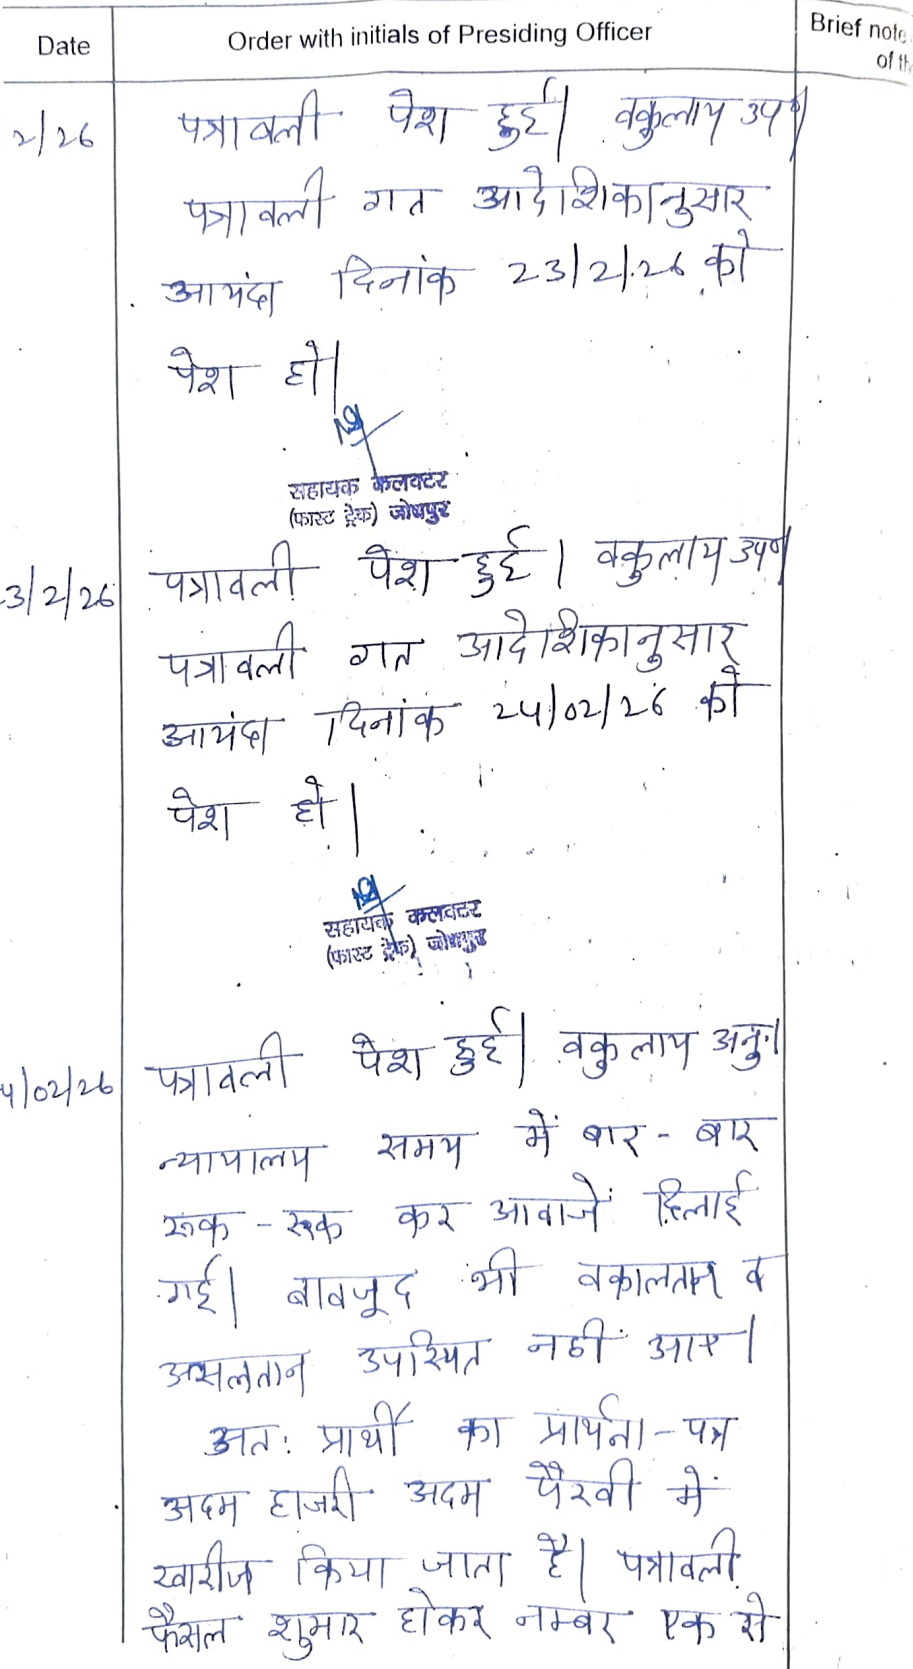 Date
Order with initials of Presiding Officer
Brief note
of the
2/26
पत्रावली पेश हुई। वकुलाय उप०
पत्रावली गत आदेशिकानुसार
आयंदा दिनांक 23/2/26 को
पेश हो।
सहायक कलक्टर
(फास्ट ट्रेक) जोधपुर
3/2/26
पत्रावली पेश हुई। वकुलाय उप०
पत्रावली गत आदेशिकानुसार
आयंदा दिनांक 24/02/26 को
पेश हो।
सहायक कलक्टर
(फास्ट ट्रेक) जोधपुर
4/02/26
पत्रावली पेश हुई। वकुलाय अनु.।
न्यायालय समय में बार - बार
रूक - रूक कर आवाजें दिलाई
गई। बावजूद भी वकालतन व
असलतान उपस्थित नहीं आए।
अत: प्रार्थी का प्रार्थना - पत्र
अदम हाजरी अदम पैरवी में
खारीज किया जाता है। पत्रावली
फैसल शुमार होकर नम्बर एक से